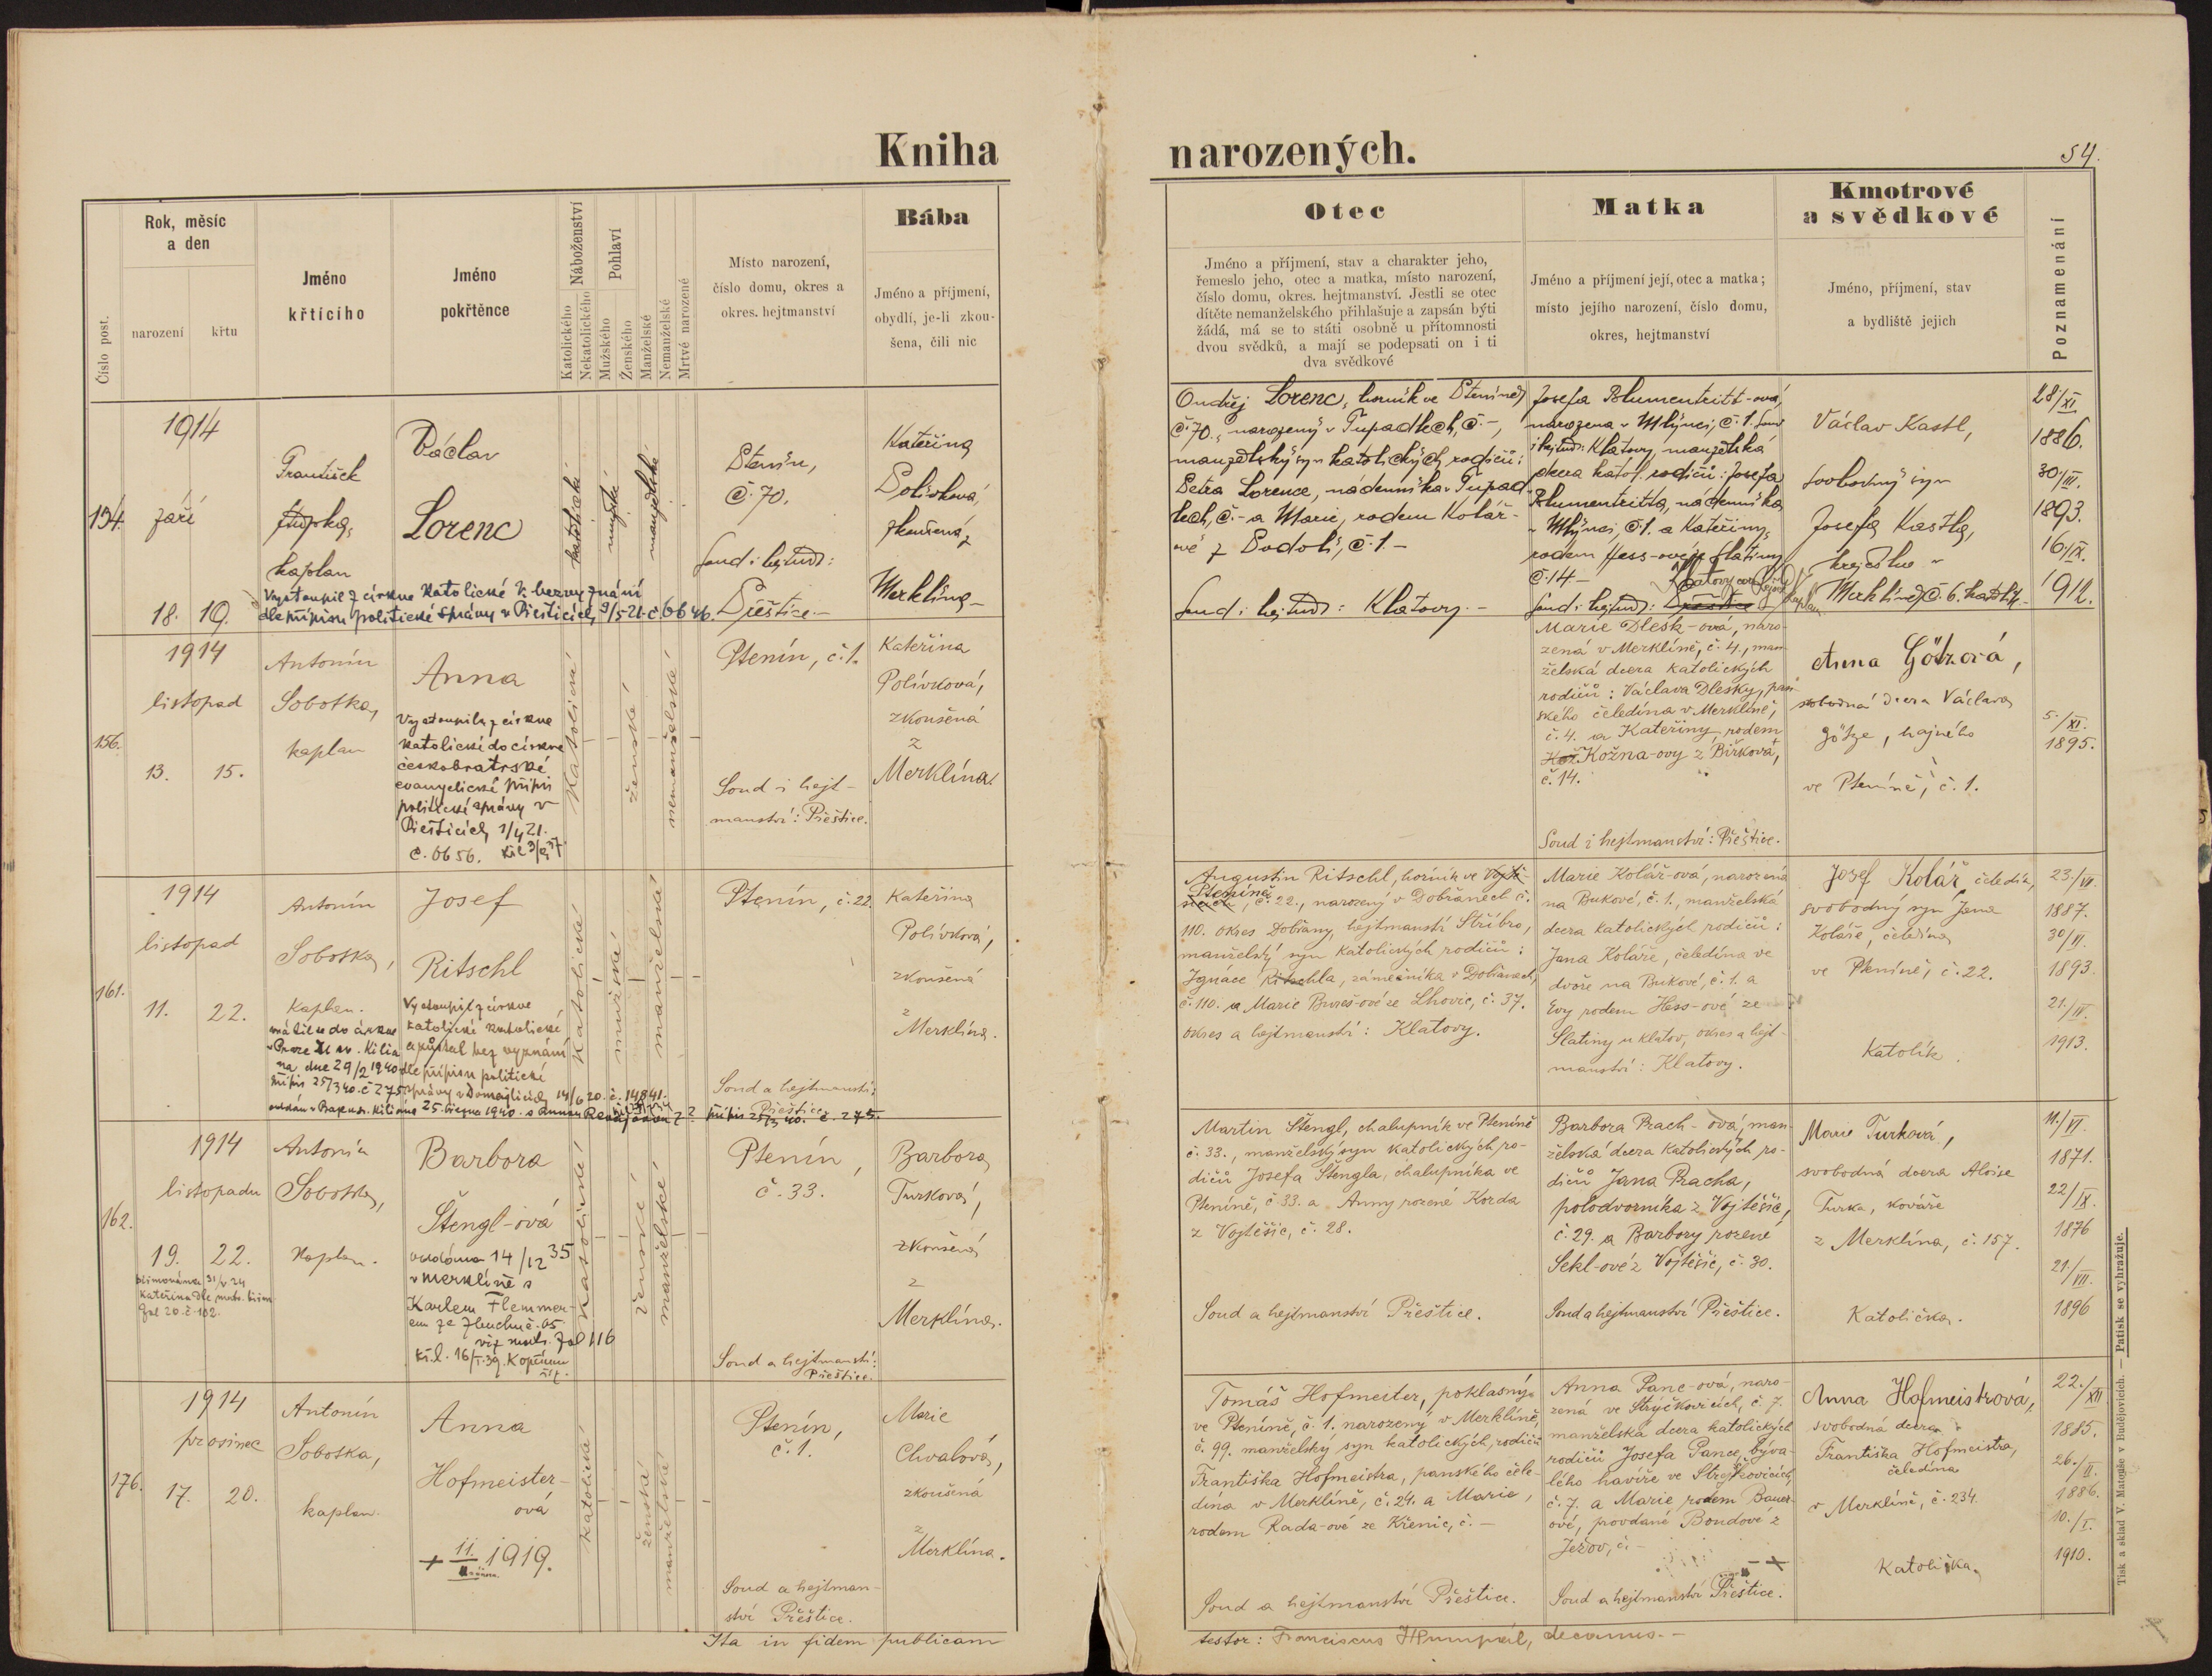 Kniha
narozených.
54.
Číslo post.
Rok, měsíc
a den
narození
křtu
Jméno
křtícího
Jméno
pokřtěnce
Náboženství
Katolického
Nekatolického
Pohlaví
Mužského
Ženského
Manželské
Nemanželské
Mrtvé narozené
Místo narození,
číslo domu, okres a
okres. hejtmanství
Bába
Jméno a příjmení,
obydlí, je-li zkou-
šena, čili nic
Otec
Jméno a příjmení, stav a charakter jeho,
řemeslo jeho, otec a matka, místo narození,
číslo domu, okres. hejtmanství. Jestli se otec
dítěte nemanželského přihlašuje a zapsán býti
žádá, má se to státi osobně u přítomnosti
dvou svědků, a mají se podepsati on i ti
dva svědkové
Matka
Jméno a příjmení její, otec a matka;
místo jejího narození, číslo domu,
okres, hejtmanství
Kmotrové
a svědkové
Jméno, příjmení, stav
a bydliště jejich
Poznamenání
154.
1914
září
18. 19.
František
kaplan
Václav
Lorenc
Vystoupil z církve katolické k bezvyznání
dle přípisu politické správy v Přešticích 9/5 21 č. 6646.
katolické
mužské
manželské
Ptenín,
č. 70.
Soud i hejtm:
Přeštice.-
Kateřina
Polívková,
zkoušená z
Merklína-
Ondřej Lorenc, horník ve Pteníně
č. 70., narozený v Tupadlech, č. -,
manželský syn katolických rodičů:
Petra Lorence, nádenníka v Tupad-
lech, č. - a Marie, rodem Kolář-
ové z Podolí, č. 1. -
Soud i hejtm: Klatovy. -
Josefa Blumentritt-ová,
narozena v Mlýnci, č. 1. soud
i hejtm: Klatovy, manželská
dcera katol. rodičů: Josefa
Blumentritta, nádenníka
v Mlýnci, č. 1. a Kateřiny,
rodem Hess-ové ze Slatiny
č. 14 -
Soud i hejtm:
Václav Kastl,
svobodný syn
Josefa Kastla,
krejčího v
Merklíně č. 6. katolík -
28/XI.
1886.
30/III.
1893.
16/IX.
1912.
156.
1914
listopad
13. 15.
Antonín
Sobotka,
kaplan
Anna
Vystoupila z církve
katolické do církve
českobratrské
evangelické přípis
politické správy v
Přešticích 1/4 21.
č. 6656.
katolické
ženské
nemanželské
Ptenín, č. 1.
Soud i hejt-
manství: Přeštice.
Kateřina
Polívková,
zkoušená
z
Merklína.
Marie Dlesk-ová, naro-
zená v Merklíně, č. 4., man-
želská dcera katolických
rodičů: Václava Dlesky, pan-
ského čeledína v Merklíně,
č. 4. a Kateřiny, rodem
Kož Kožna-ovy z Bířkova,
č. 14.
Soud i hejtmanství: Přeštice.
Anna Götzová,
svobodná dcera Václava
Götze, hajného
ve Pteníně, č. 1.
5./XI.
1895.
161.
1914
listopad
11. 22.
Antonín
Sobotka,
kaplan.
Josef
Ritschl
Vystoupil z církve
katolické
a zůstal bez vyznání
dle přípisu politické
správy v Domažlicích 14/6 20. č. 14841.
vrátil se do církve
v Praze XI sv. Kilia-
na dne 29/2 1940
přípis 25/3 40. č. 275.
katolické
mužské
manželské
Ptenín, č. 22.
Soud a hejtmanství:
Přeštice.
přípis 25/3 40. č. 275.
Kateřina
Polívková,
zkoušená
z
Merklína.
Augustin Ritschl, horník ve
Pteníně, č. 22., narozený v Dobřanech č.
110. okres Dobřany, hejtmanství Stříbro,
manželský syn katolických rodičů:
Ignáce Ritschla, zámečníka v Dobřanech,
č. 110. a Marie Bureš-ové ze Lhovic, č. 37.
okres a hejtmanství: Klatovy.
Marie Kolář-ová, narozená
na Bukové, č. 1., manželská
dcera katolických rodičů:
Jana Koláře, čeledína ve
dvoře na Bukové, č. 1. a
Evy rodem Hess-ové ze
Slatiny u Klatov, okres a hejt-
manství: Klatovy.
Josef Kolář, čeledín,
svobodný syn Jana
Koláře, čeledína
ve Pteníně, č. 22.
Katolík.
23./VI.
1887.
30/VI.
1893.
21./IV.
1913.
162.
1914
listopadu
19. 22.
biřmována 31/V 24
Kateřina dle matr. biřm.
fol 20. č. 102.
Antonín
Sobotka,
kaplan.
Barbora
Štengl-ová
oddána 14/12 35
v Merklíně s
Karlem Flemmer-
em ze Zbuchu č. 65
viz matr. fol 116
katolické
ženské
manželské
Ptenín,
č. 33.
Soud a hejtmanství:
Přeštice.
Barbora
Turková,
zkoušená
z
Merklína.
Martin Štengl, chalupník ve Pteníně
č. 33., manželský syn katolických ro-
dičů Josefa Štengla, chalupníka ve
Pteníně, č. 33. a Anny rozené Korda
z Vojtěšic, č. 28.
Soud a hejtmanství Přeštice.
Barbora Prach-ová, man-
želská dcera katolických ro-
dičů Jana Pracha,
polodvorníka z Vojtěšic,
č. 29. a Barbory rozené
Sekl-ové z Vojtěšic, č. 30.
Soud a hejtmanství Přeštice.
Marie Turková,
svobodná dcera Aloise
Turka, kováře
z Merklína, č. 157.
Katolička.
11./VI.
1871.
22/IX.
1876
21./VII.
1896
176.
1914
prosinec
17. 20.
Antonín
Sobotka,
kaplan.
Anna
Hofmeister-
ová
+ 11. 1919.
katolické
ženské
manželské
Ptenín,
č. 1.
Soud a hejtman-
ství Přeštice.
Marie
Chvalová,
zkoušená
z
Merklína.
Tomáš Hofmeister, poklasný
ve Pteníně, č. 1. narozený v Merklíně,
č. 99. manželský syn katolických rodičů
Františka Hofmeistra, panského čele-
dína v Merklíně, č. 24. a Marie,
rodem Rada-ové ze Křenic, č. -
Soud a hejtmanství Přeštice.
Anna Panc-ová, naro-
zená ve Strýčkovicích, č. 7.
manželská dcera katolických
rodičů Josefa Pance, býva-
lého havíře ve Strýčkovicích,
č. 7. a Marie rodem Bauer-
ové, provdané Boudové z
Ježov, č. -
Soud a hejtmanství Přeštice.
Anna Hofmeistrová,
svobodná dcera
Františka Hofmeistra,
čeledína
v Merklíně, č. 234.
Katolička.
22./XII
1885.
26./II.
1886.
10./I.
1910.
Ita in fidem publicam
testor: Franciscus decanus. -
Tisk a sklad V. Matouše v Budějovicích. — Patisk se vyhražuje.